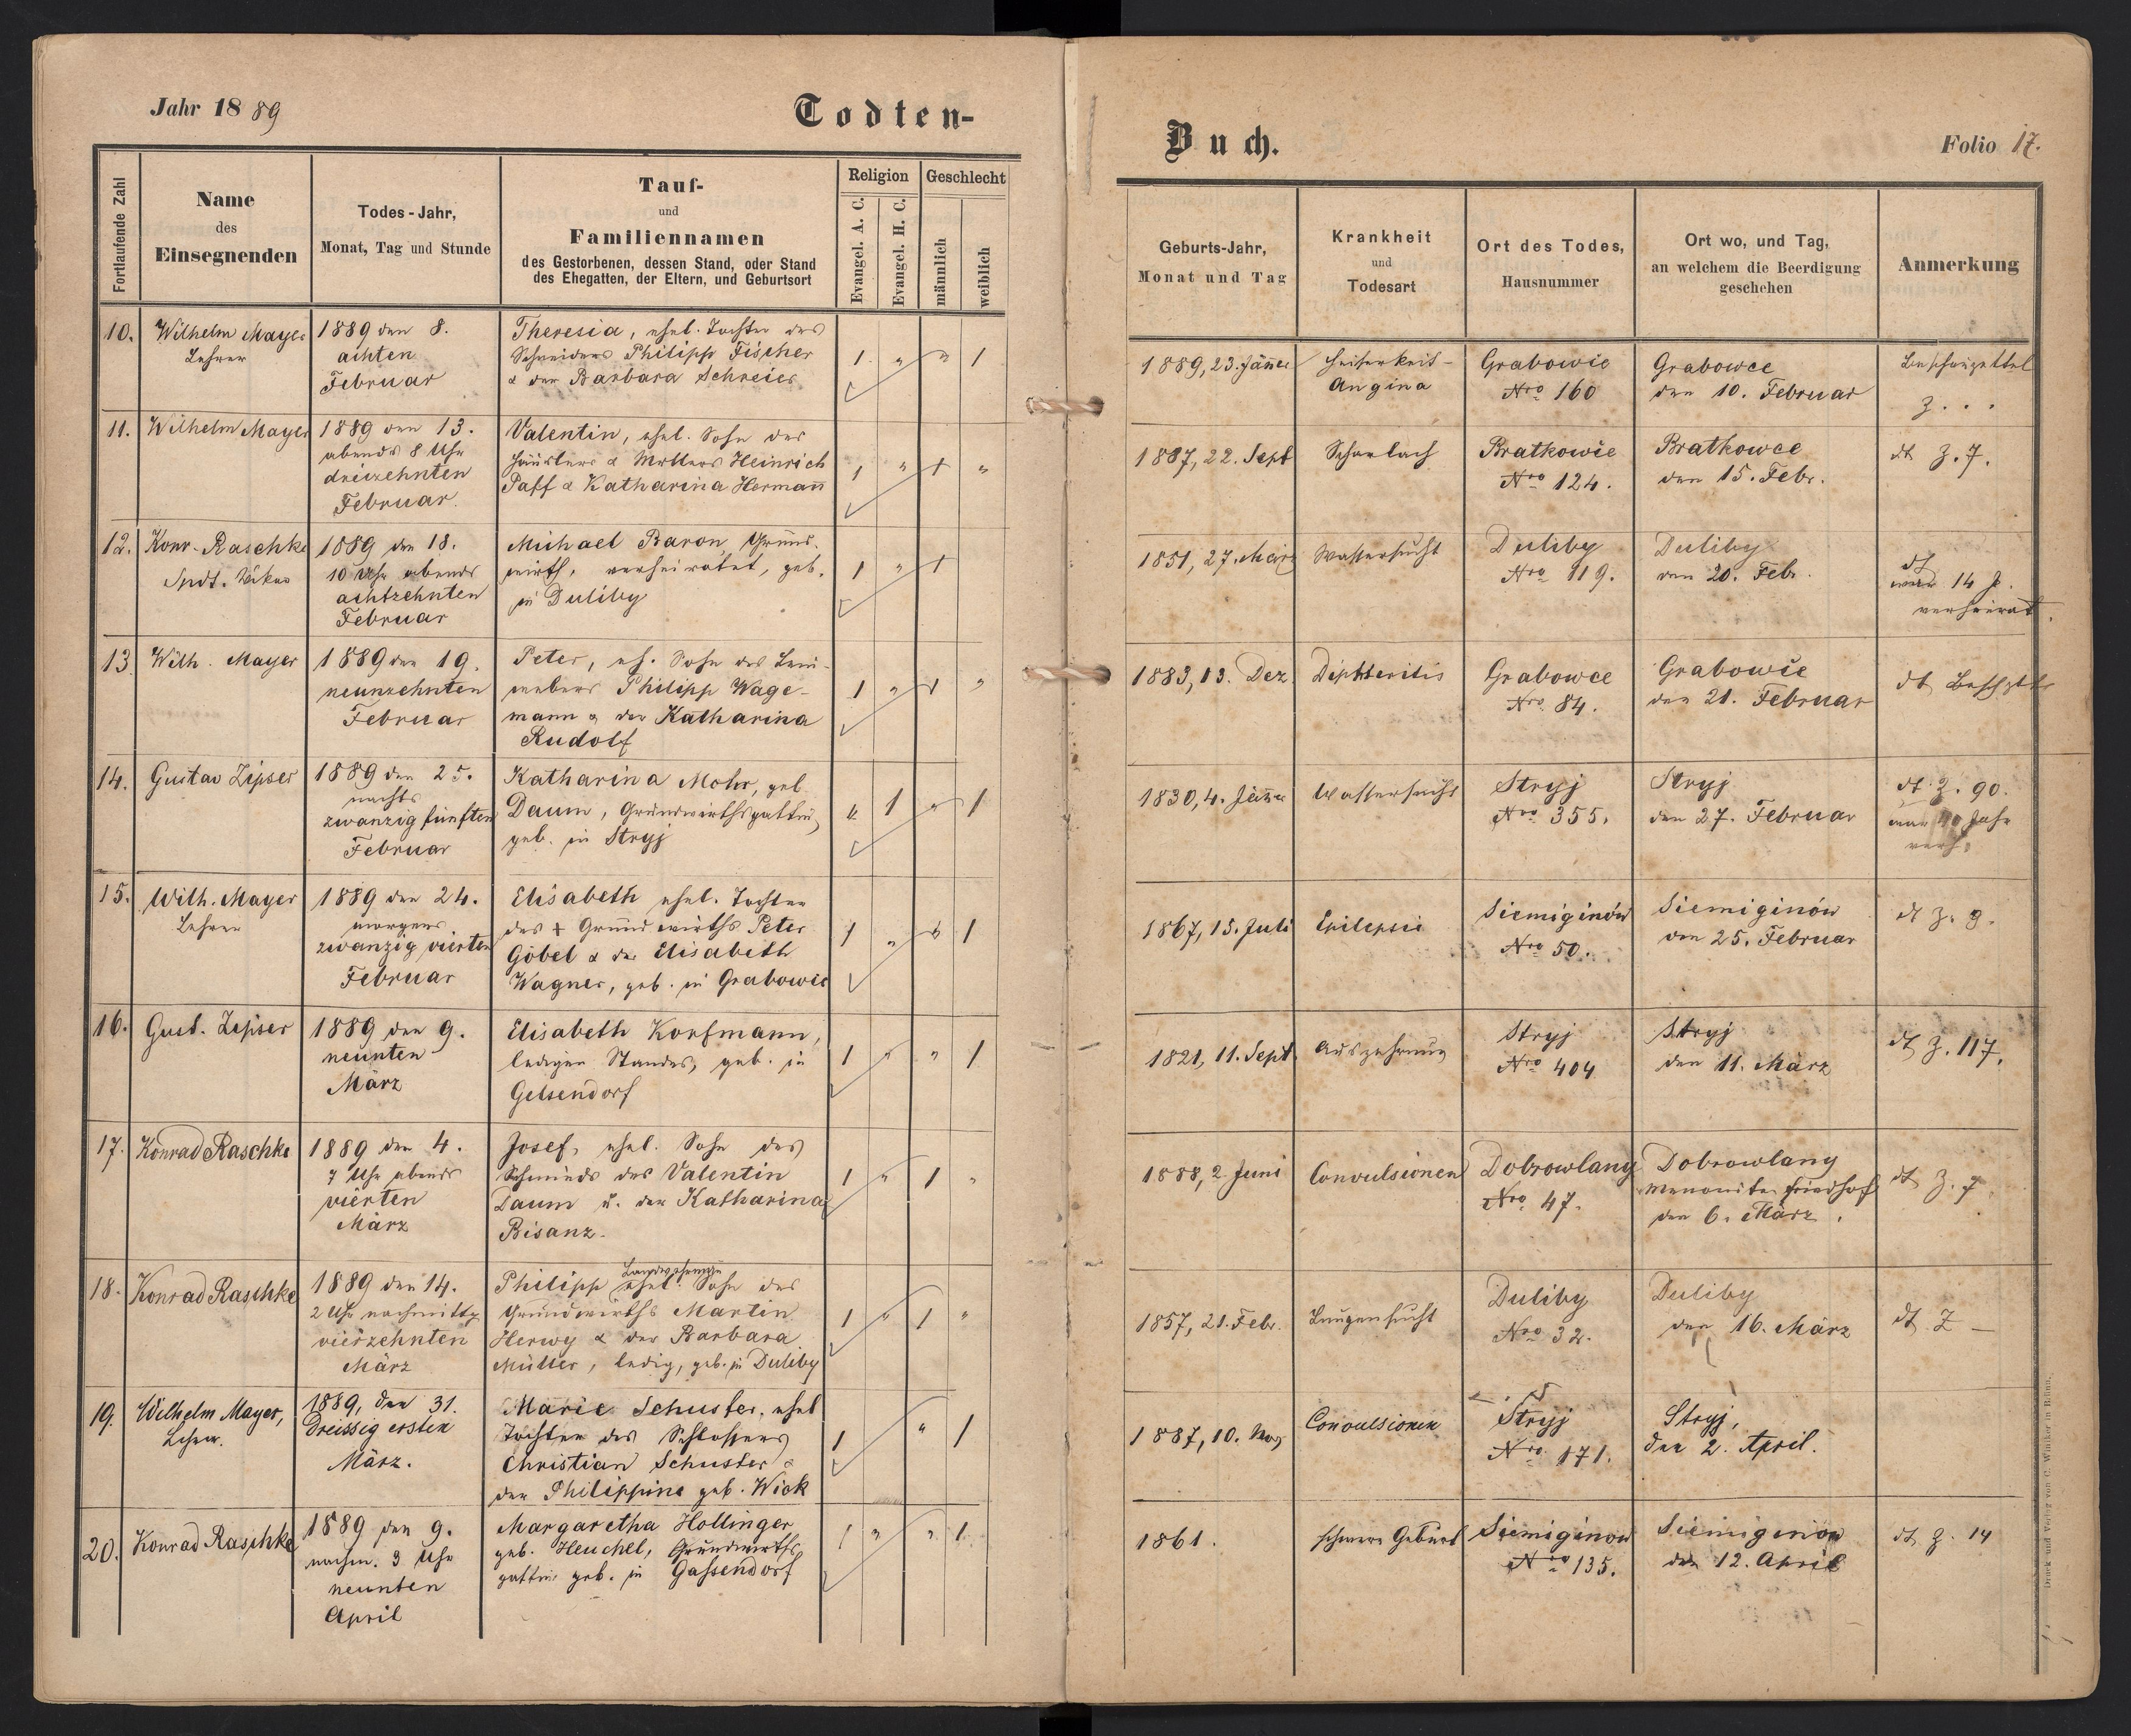 Jahr 1889
Todten-
Fortlaufende Zahl
Name
des
Einsegnenden
Todes-Jahr,
Monat, Tag und Stunde
Tauf-
und
Familiennamen
des Gestorbenen, dessen Stand, oder Stand
des Ehegatten, der Eltern, und Geburtsort
Religion
Geschlecht
Evangel. A. C.
Evangel. H. C.
männlich
weiblich
10.
Wilhelm Mayer
Lehrer
1889 den 8.
achten
Februar
Theresia, ehel. Tochter des
Schneiders Philipp Fischer
& der Barbara Schreier
1 " " 1
11.
Wilhelm Mayer
1889 den 13.
abends 8 Uhr
dreizehnten
Februar
Valentin, ehel. Sohn des
Häuslers & Heinrich
Paff & Katharina Hermann
1 " 1 "
12.
Konr. Raschke
Vikar
1889 den 18.
10 Uhr abends
achtzehnten
Februar
Michael Baron, Grund-
wirth, verheiratet, geb.
in Duliby
1 " 1
13
Wilh. Mayer
1889 den 19.
neunzehnten
Februar
Peter, eh. Sohn des Lein-
webers Philipp Wage-
mann & der Katharina
Rudolf
1 " 1 "
14.
Gustav Zipser
1889 den 25.
nachts
zwanzig fünften
Februar
Katharina Mohr, geb.
Daum, Grundwirthsgattin,
geb. in Stryj
" 1 " 1
15.
Wilh. Mayer
Lehrer
1889 den 24.
morgens
zwanzig vierten
Februar
Elisabeth ehel. Tochter
des + Grundwirths Peter
Göbel & der Elisabeth
Wagner, geb. in Grabowce
1 " " 1
16.
Gust. Zipser
1889 den 9.
neunten
März
Elisabeth Korfmann,
ledigen Standes, geb. in
Gelsendorf
1 " " 1
17.
Konrad Raschke
1889 den 4.
7 Uhr abends
vierten
März
Josef, ehel. Sohn des
Schmieds des Valentin
Daum u. der Katharina
Bisanz.
1 " 1 "
18.
Konrad Raschke
1889 den 14.
2 Uhr nachmittg
vierzehnten
März
Philipp ehel. Sohn des
Grundwirths Martin
Herwy & der Barbara
Müller, ledig, geb. in Duliby
1 " 1 "
19.
Wilhelm Mayer,
Lehrer.
1889, den 31.
Dreissig ersten
März.
Marie Schuster, ehel
Tochter des Schlossers
Christian Schuster &
der Philippine geb. Wick
1 " 1
20.
Konrad Raschke
1889 den 9.
nachm. 3 Uhr
neunten
April
Margaretha Hollinger
geb. Heuchel, Grundwirths
gattin geb. in Gassendorf
1 " " 1
Buch.
Folio 17.
Geburts-Jahr,
Monat und Tag
Krankheit
und
Todesart
Ort des Todes,
Hausnummer
Ort wo, und Tag,
an welchem die Beerdigung
geschehen
Anmerkung
1889, 23. Jänner
Heiserkeit-
Angina
Grabowce
Nro 160
Grabowce
den 10. Februar
Beschauzettel
Z . . .
1887, 22. Sept
Scharlach
Bratkowce
Nro 124.
Bratkowce
den 15. Febr.
dt Z. 7.
1851, 27. März
Wassersucht
Duliby
Nro 119.
Duliby
den 20. Febr.
dt
war 14 J.
verheirat.
1883, 13. Dez.
Diphteritis
Grabowce
Nro. 84.
Grabowce
den 21. Februar
dt
1830, 4. Jänner
Wassersucht
Stryj
Nro 355.
Stryj
den 27. Februar
dt. Z. 90.
war 40 Jahr
verh.
1867, 15. Juli
Epilepsie
Siemiginów
Nro 50.
Siemiginów
den 25. Februar
dt Z. 9.
1821, 11. Sept.
Auszehrung
Stryj
Nro 404
Stryj
den 11. März
dt Z. 117.
1888, 2. Juni
Convulsionen
Dobrowlany
Nro. 47.
Dobrowlany
Menoniten Friedhof
den 6. März.
dt Z. 7.
1857, 21. Febr.
Lungensucht
Duliby
Nro 32.
Duliby
den 16. März
dt Z —
1887, 10.
Convulsionen
Stryj
Nro. 171.
Stryj,
den 2. April.
1861.
schwere Geburt
Siemiginow
Nro 135.
Siemiginow
den 12. April
dt. Z. 14
Druck und Verlag von C. Winiker in Brünn.